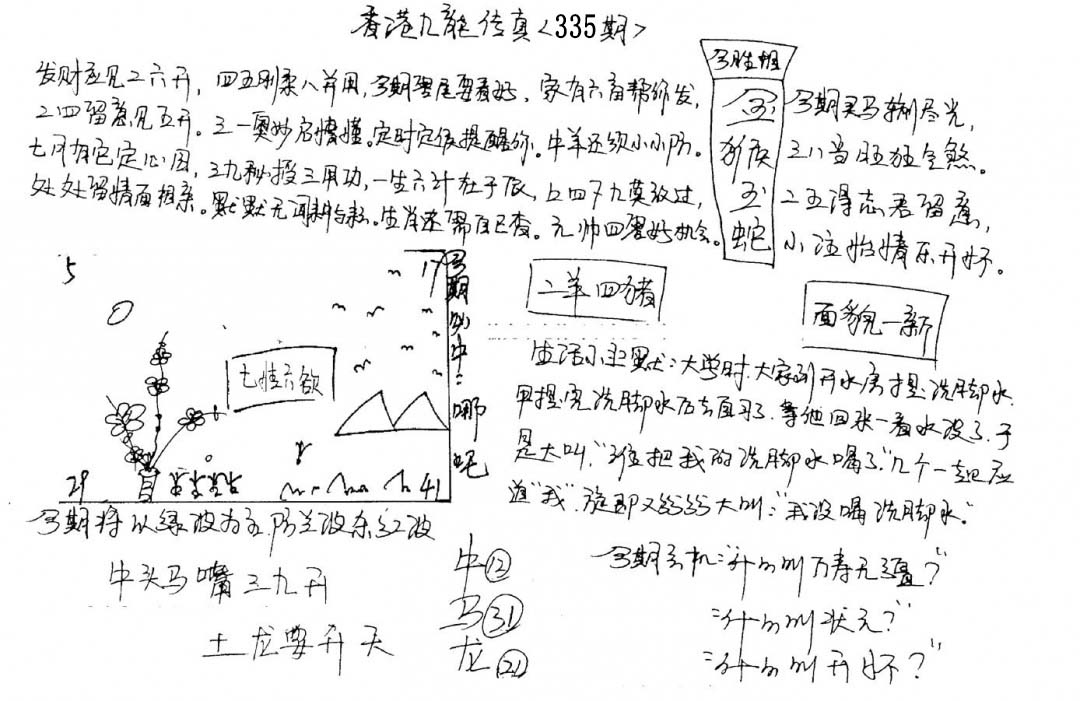 香港九龍传真〈335期〉
发财应见二六开，四五刚柔八并用，今期要尾要看好，家有六畜帮你发，
二四留意见五开。三一奥妙启情懂。定时定信提醒你。牛羊还须小小阶。
七门有它定心田，三九秘授三用功，一生六计在于辰，上四下九莫放过，
处处留情面相亲。默默无闻耕与耘。生肖还需自己查。元帅四星好机会。
今期灵马輙尽光，
三八当旺狂全煞。
二五得志君留意，
小注怡情乐开怀。
金
猴
玉
蛇
5
17
今期必中：哪吒
七情六欲
29
41
二羊四猪
面貌一新
生活小幽默：大学时大家到开水房提洗脚水.
甲提完洗脚水后去自习了.等他回来一看水没了.于
是大叫，"谁把我的洗脚水喝了."几个一起应
道"我".旋即又纷纷大叫："我没喝洗脚水."
今期将以绿波为主.防兰波杀红波
牛头马嘴三九开
土龙要升天
牛⑫
马㉛
龙㉑
今期玄机："什么叫万寿无疆？"
："什么叫状元？"
："什么叫开怀？"